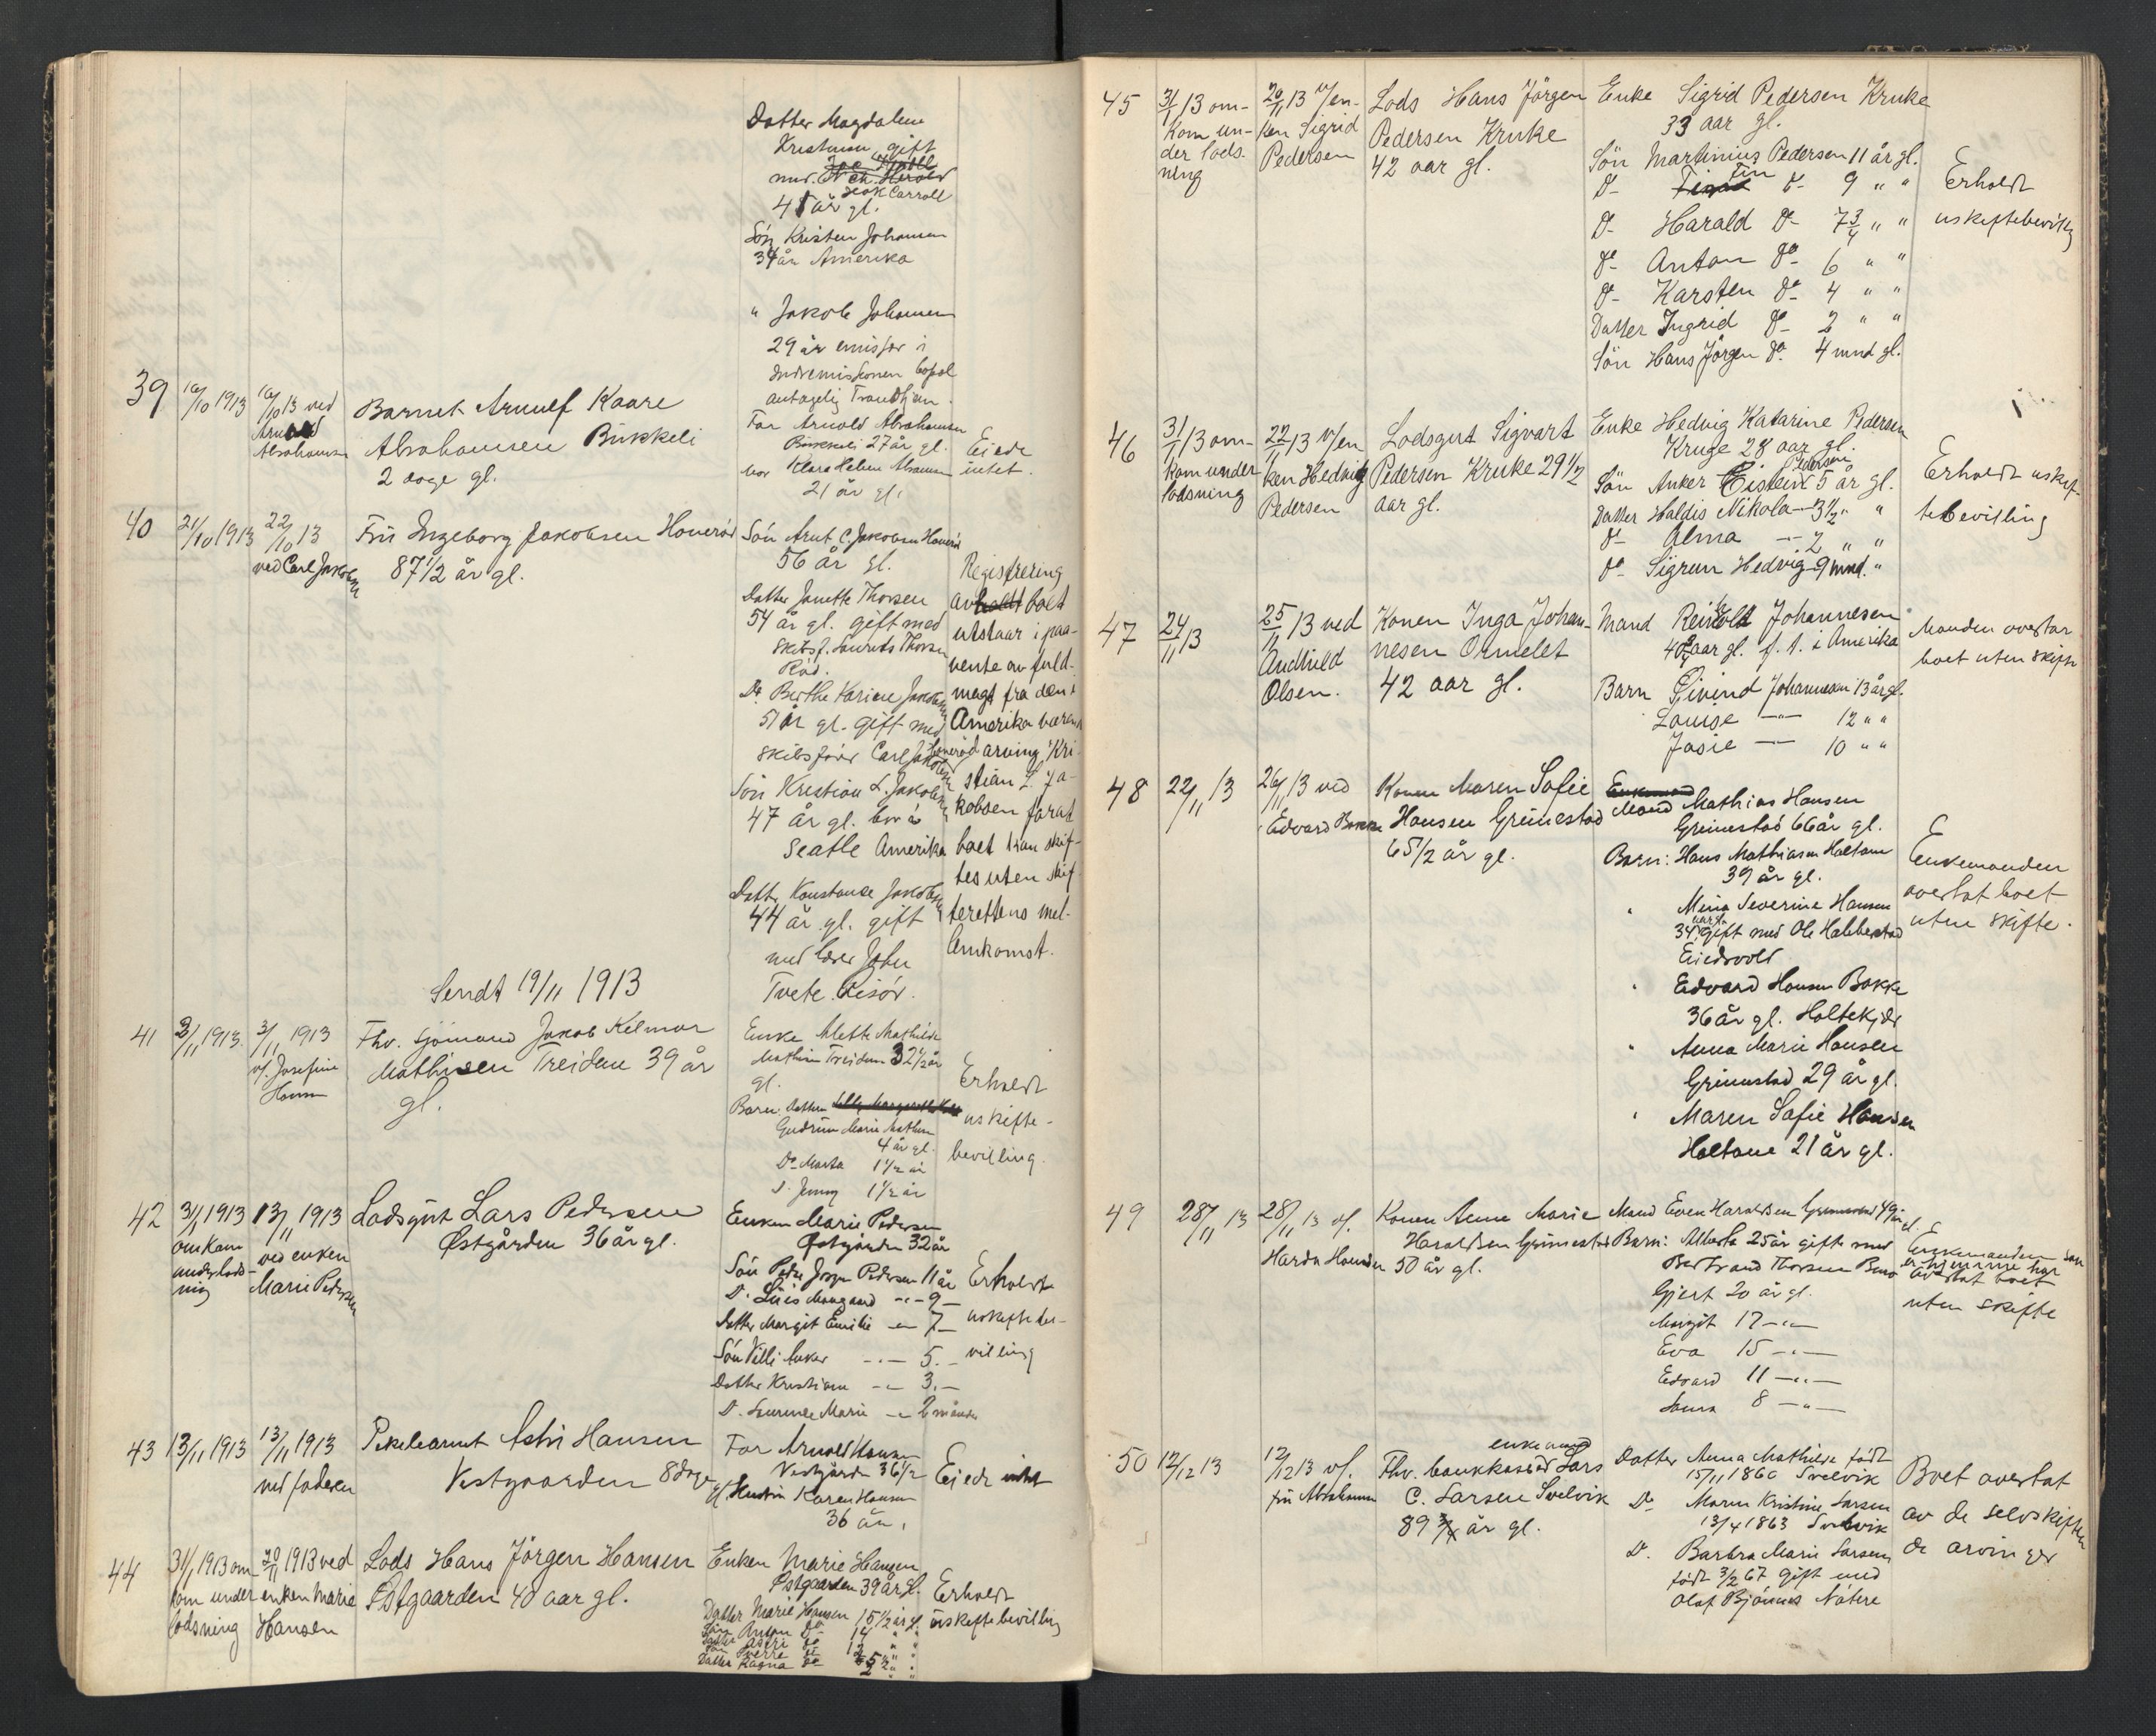 Datter Magdalene
gift
45 år gl.
Sön Kristen Johansen
34 år Amerika
" Jakob Johansen
29 år emissær i
Indremissionen bopæl
antagelig Trondhjem.
39 16/10 1913 16/10 13 ved Arnold Abrahamsen
Barnet Arnulf Kaare
Abrahamsen Bukkeli
2 dage gl.
Far Arnold Abrahamsen
Bukkeli 27 år gl.
Mor Klara Helene Abrahamsen
21 år gl.
Eiede
intet.
40 21/10 1913 22/10 13
ved Carl Jakobsen
Fru Ingeborg Jakobsen Honerød
87 1/2 år gl.
Sön Arnt C. Jakobsen Honerød
56 år gl.
Datter Janette Thorsen
54 år gl. gift med
skibsf. Laurits Thorsen
Röd.
Do Berthe Karine Jakobsen
51 år gl. gift med
skibsförer Carl Jakobsen Honeröd
Sön Kristian L. Jakobsen
47 år gl. bor i
Seatle Amerika
Datter Konstanse Jakobsen
44 år gl. gift
med lærer John
Tvete. Risör.
Registrering
av boet
utstaar i paa-
vente av fuld-
magt fra den i
Amerika værende
arving Kri-
stian L. Ja-
kobsen forat
boet kan skif-
tes uten skif-
terettens mel-
lemkomst.
Sendt 19/11 1913
41 2/11 1913. 3/11 1913
v/ Josefine
Hansen
Fhv. sjömand Jakob Kelmar
Mathisen Treidene 39 år
gl.
Enke Mette Mathilde
Mathisen Treidene 32 1/2 år
gl.
Barn: Datter
Gudrun Marie Mathisen
4 år gl.
Do Marta 1 1/2 år
D. Jenny 1 1/2 år
Erholdt
uskifte-
bevilling.
42 31/1 1913
omkom
under lods-
ning
13/11 1913
ved enken
Marie Pedersen
Lodsgut Lars Pedersen
Østgården 36 år gl.
Enken Marie Pedersen
Østgården 32 år
Sön Peder Jörgen Pedersen 11 år
D. Luis Maugaard -"- 9 -
Datter Margit Emilie -"- 7 -
Sön Villi Anker -"- 5. -
Datter Kristiane -"- 3. -
D. Laurence Marie -"- 2 måneder
Erholdt
uskiftebe-
villing
43 13/11 1913 13/11 1913
ved faderen
Pikebarnet Astri Hansen
Vestgaarden 8 dage
Far Arnold Hansen
Vestgården 36 1/2
Hustru Karen Hansen
36 år.
Eiede intet
44 31/1 1913 om-
kom under
lodsning
20/11 1913 ved
enken Marie
Hansen
Lods Hans Jörgen Hansen
Østgaarden 40 aar gl.
Enken Marie Hansen
Østgaarden 39 år gl.
Datter Marie Hansen 15 1/2 år gl.
Sön Anton do 14 " "
Datter Astri do 12 " "
Sön Sverre do 5 1/2 " "
Datter Ragna do 2 " "
Erholdt
uskiftebevilling
45 31/1 13 om-
kom un-
der lods-
ning
20/11 13 v/en-
ken Sigrid
Pedersen
Lods Hans Jörgen
Pedersen Kruke
42 aar gl.
Enke Sigrid Pedersen Kruke
33 aar gl.
Sön Martinius Pedersen 11 år gl.
do Finn do 9 " "
do Harald do 7 3/4 " "
do Anton do 6 " "
do Karsten do 4 " "
Datter Ingrid do 2 " "
Sön Hans Jörgen do 4 mnd gl.
Erholdt
uskiftebevilling
46 31/1 13 om-
kom under
lodsning
22/11 13 v/en
ken Hedvig
Pedersen
Lodsgut Sigvart
Pedersen Kruke 29 1/2
aar gl.
Enke Hedvig Katarine Pedersen
Kruge 28 aar gl.
Sön Anker Eistein Pedersen 5 år gl.
Datter Haldis Nikola -"- 3 1/2 " "
do Alma -"- 2 " "
do Sigrun Hedvig -"- 9 mnd. "
Erholdt uskif-
tebevilling
47 24/11 13
25/11 13 ved
Andhild
Olsen.
Konen Inga Johan-
nesen Ormelet
42 aar gl.
Mand Reinholdt Johannesen
aar gl. f. t. i Amerika
Barn Eivind Johannesen 13 år gl.
Louise -"- 12 " "
Josie -"- 10 " "
Manden overtar
boet uten skifte
48 22/11 13
26/11 13 ved
Edvard Bakke
Konen Maren Sofie
Hansen Grimestad
65 1/2 år gl.
Mand Mathias Hansen
Grimestad 66 år gl.
Barn: Hans Mathiasen Haltane
39 år gl.
" Mina Severine Hansen
34 aar gl. gift med Ole Halbestad
Eiedsvold
" Edvard Hansen Bakke
36 år gl. Holtekjær
" Anna Marie Hansen
Grimestad 29 år gl.
" Maren Sofie Hansen
Haltane 21 år gl.
Enkemanden
overtat boet
uten skifte.
49 28/11 13
28/11 13 v/.
Harda Hansen
Konen Anne Marie
Haraldsen Grimestad
50 år gl.
Mand Even Haraldsen Grimestad 49 år gl.
Barn: Alberta 25 år gift med
Bertrand Thorsen
Gjert 20 år gl.
Margit 17 -"-
Eva 15 -"-
Edvard 11 -"-
Laura 8 -"-
Enkemanden som
er hjemme har
overtat boet
uten skifte
50 12/12 13
12/12 13 v/.
fru Abrahamsen
enkemand
Fhv. bankkasserer Lars
C. Larsen Svelvik
89 3/4 år gl.
Datter Anna Mathilde født
15/11 1860 Svelvik
Do Maren Kristine Larsen
13/4 1863 Svelvik
D. Barbra Marie Larsen
født 3/2 67 gift med
Olaf Bjönnes Nötterø
Boet overtat
av de selvskiften-
de arvinger